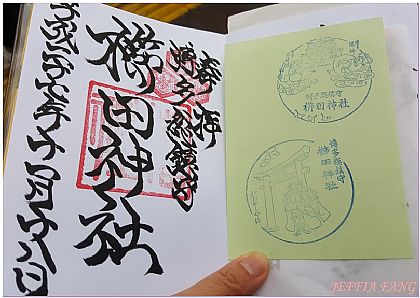 奉拝
博多総鎮守
櫛田神社
平成二十七年十二月十八日
博多総鎮守
櫛田神社
博多総鎮守
櫛田神社
JEFFIA FANG